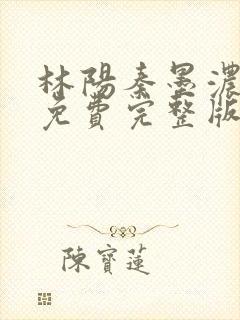 林陽秦墨濃
免費完整版
陳寶蓮